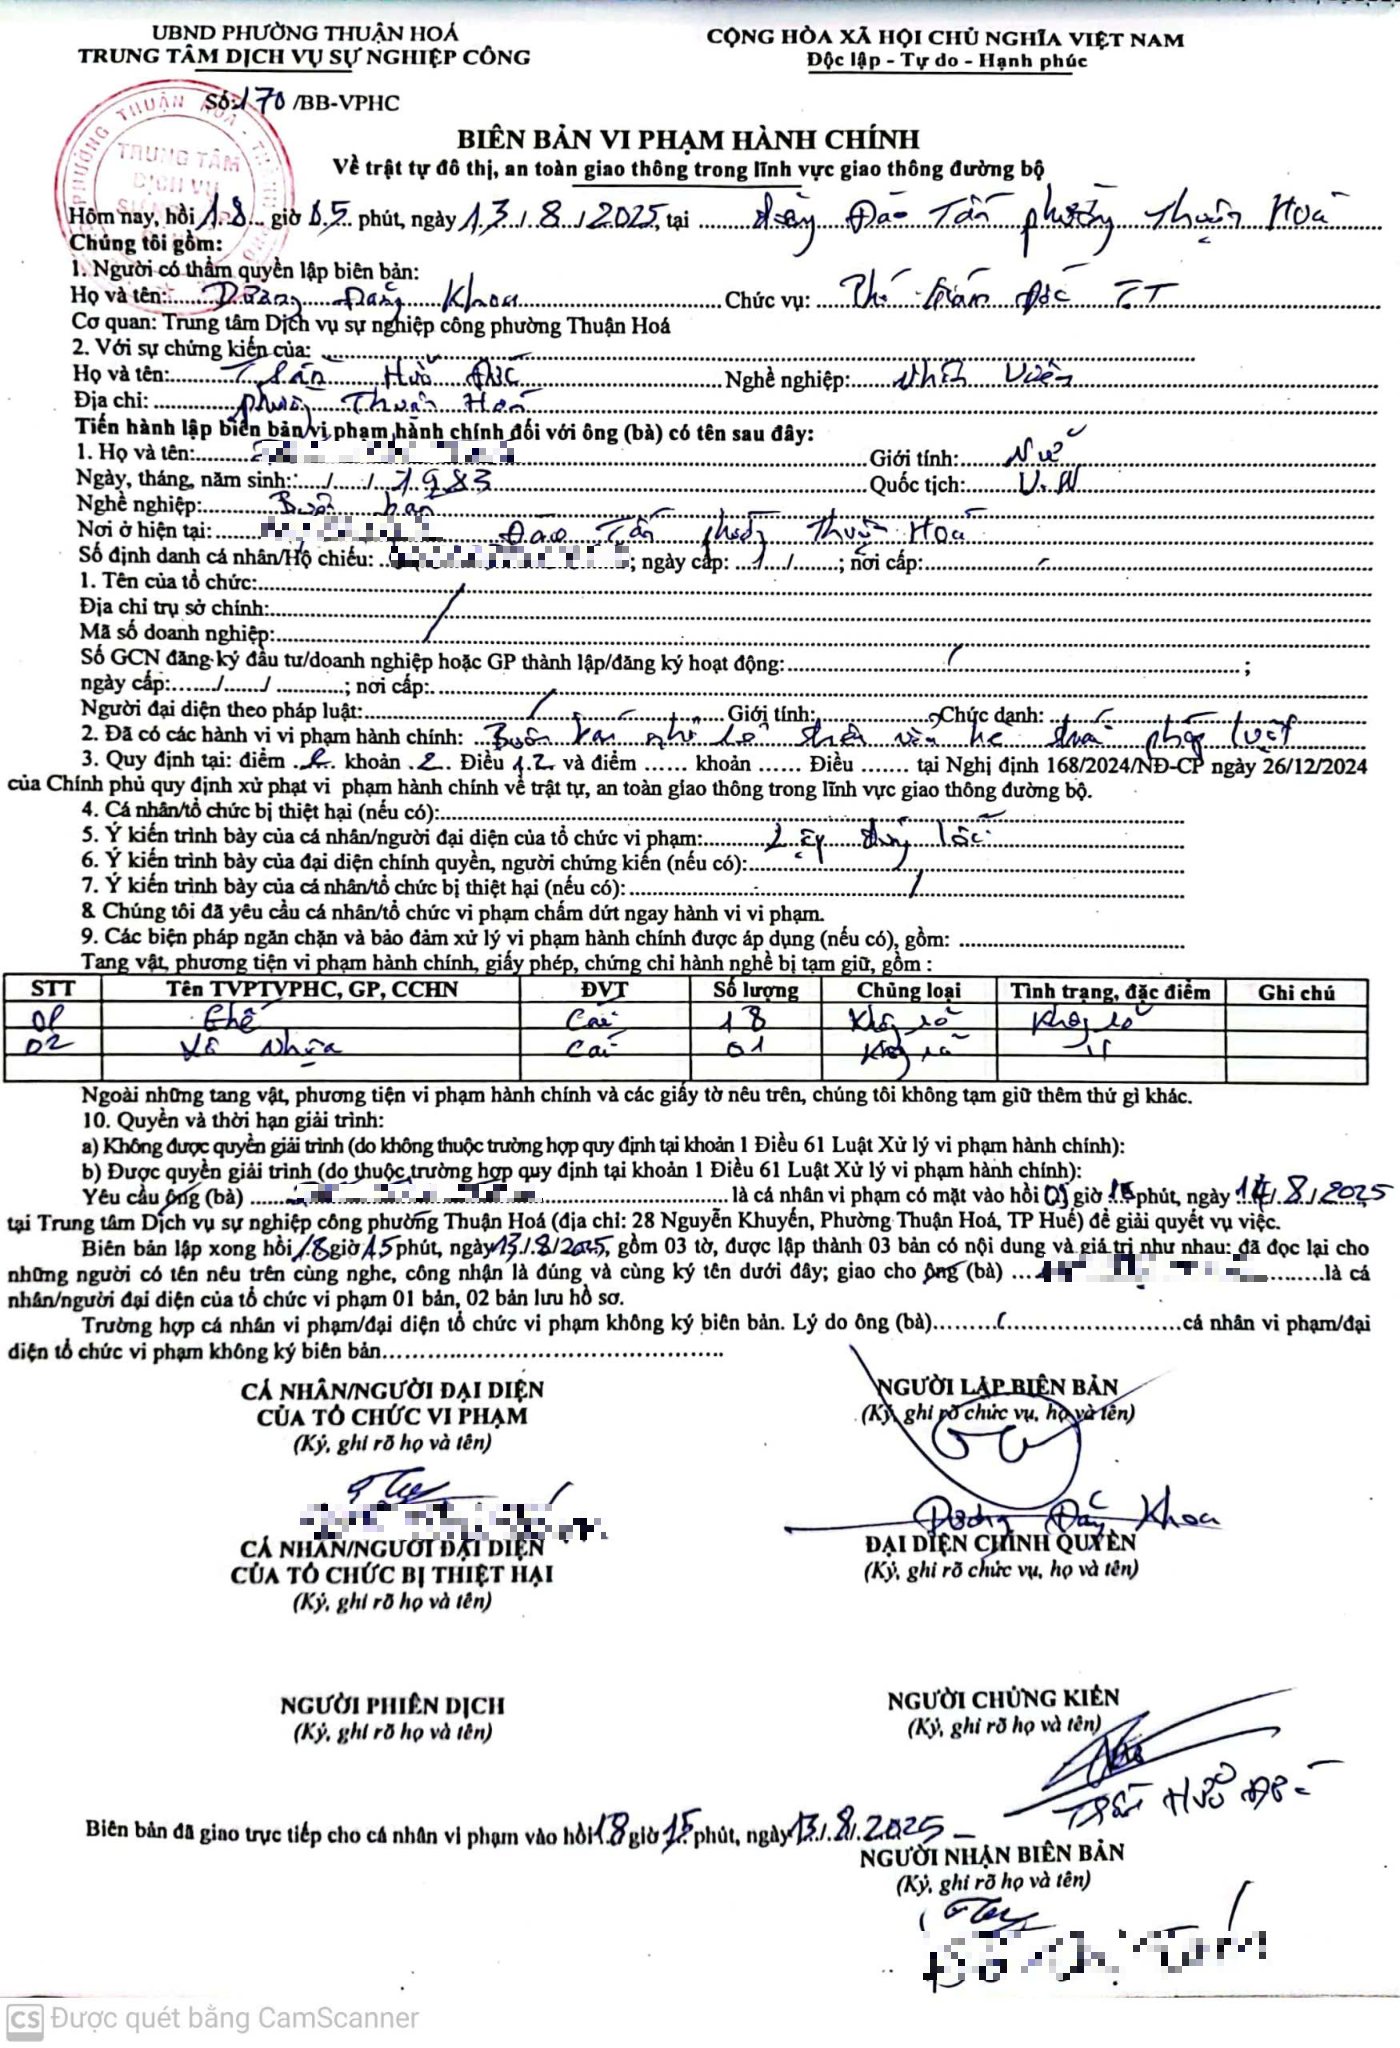 UBND PHƯỜNG THUẬN HOÁ
TRUNG TÂM DỊCH VỤ SỰ NGHIỆP CÔNG
CỘNG HÒA XÃ HỘI CHỦ NGHĨA VIỆT NAM
Độc lập - Tự do - Hạnh phúc
Số: 170 /BB-VPHC
TRUNG TÂM
DỊCH VỤ
BIÊN BẢN VI PHẠM HÀNH CHÍNH
Về trật tự đô thị, an toàn giao thông trong lĩnh vực giao thông đường bộ
Hôm nay, hồi 18 giờ 05 phút, ngày 13/8/2025, tại đường Đào Tấn phường Thuận Hoá
Chúng tôi gồm:
1. Người có thẩm quyền lập biên bản:
Họ và tên: Dương Đăng Khoa Chức vụ: Phó Giám Đốc TT
Cơ quan: Trung tâm Dịch vụ sự nghiệp công phường Thuận Hoá
2. Với sự chứng kiến của:
Họ và tên: Trần Hữu Đức Nghề nghiệp: Nhân viên
Địa chỉ: phường Thuận Hoá
Tiến hành lập biên bản vi phạm hành chính đối với ông (bà) có tên sau đây:
1. Họ và tên: Giới tính: Nữ
Ngày, tháng, năm sinh: / / 1983 Quốc tịch: V.N
Nghề nghiệp: Buôn bán
Nơi ở hiện tại: Đào Tấn phường Thuận Hoá
Số định danh cá nhân/Hộ chiếu: ; ngày cấp: / / ; nơi cấp:
1. Tên của tổ chức:
Địa chỉ trụ sở chính:
Mã số doanh nghiệp:
Số GCN đăng ký đầu tư/doanh nghiệp hoặc GP thành lập/đăng ký hoạt động: ;
ngày cấp: / / ; nơi cấp:
Người đại diện theo pháp luật: Giới tính: Chức danh:
2. Đã có các hành vi vi phạm hành chính: Buôn bán nhỏ lẻ trên vỉa hè trái pháp luật
3. Quy định tại: điểm khoản 2 Điều 12 và điểm ...... khoản ...... Điều ....... tại Nghị định 168/2024/NĐ-CP ngày 26/12/2024
của Chính phủ quy định xử phạt vi phạm hành chính về trật tự, an toàn giao thông trong lĩnh vực giao thông đường bộ.
4. Cá nhân/tổ chức bị thiệt hại (nếu có):
5. Ý kiến trình bày của cá nhân/người đại diện của tổ chức vi phạm: Lập đúng lỗi
6. Ý kiến trình bày của đại diện chính quyền, người chứng kiến (nếu có):
7. Ý kiến trình bày của cá nhân/tổ chức bị thiệt hại (nếu có):
8. Chúng tôi đã yêu cầu cá nhân/tổ chức vi phạm chấm dứt ngay hành vi vi phạm.
9. Các biện pháp ngăn chặn và bảo đảm xử lý vi phạm hành chính được áp dụng (nếu có), gồm:
Tang vật, phương tiện vi phạm hành chính, giấy phép, chứng chỉ hành nghề bị tạm giữ, gồm :
STT Tên TVPTVPHC, GP, CCHN ĐVT Số lượng Chủng loại Tình trạng, đặc điểm Ghi chú
01 Ghế Cái 18 Không rõ Không rõ
02 Xô Nhựa Cái 01 Không rõ
Ngoài những tang vật, phương tiện vi phạm hành chính và các giấy tờ nêu trên, chúng tôi không tạm giữ thêm thứ gì khác.
10. Quyền và thời hạn giải trình:
a) Không được quyền giải trình (do không thuộc trường hợp quy định tại khoản 1 Điều 61 Luật Xử lý vi phạm hành chính):
b) Được quyền giải trình (do thuộc trường hợp quy định tại khoản 1 Điều 61 Luật Xử lý vi phạm hành chính):
Yêu cầu ông (bà) là cá nhân vi phạm có mặt vào hồi giờ phút, ngày 14/8/2025
tại Trung tâm Dịch vụ sự nghiệp công phường Thuận Hoá (địa chỉ: 28 Nguyễn Khuyến, Phường Thuận Hoá, TP Huế) để giải quyết vụ việc.
Biên bản lập xong hồi 18 giờ 15 phút, ngày 13/8/2025, gồm 03 tờ, được lập thành 03 bản có nội dung và giá trị như nhau; đã đọc lại cho
những người có tên nêu trên cùng nghe, công nhận là đúng và cùng ký tên dưới đây; giao cho ông (bà) là cá
nhân/người đại diện của tổ chức vi phạm 01 bản, 02 bản lưu hồ sơ.
Trường hợp cá nhân vi phạm/đại diện tổ chức vi phạm không ký biên bản. Lý do ông (bà) cá nhân vi phạm/đại
diện tổ chức vi phạm không ký biên bản
CÁ NHÂN/NGƯỜI ĐẠI DIỆN
CỦA TỔ CHỨC VI PHẠM
(Ký, ghi rõ họ và tên)
NGƯỜI LẬP BIÊN BẢN
(Ký, ghi rõ chức vụ, họ và tên)
Dương Đăng Khoa
CÁ NHÂN/NGƯỜI ĐẠI DIỆN
CỦA TỔ CHỨC BỊ THIỆT HẠI
(Ký, ghi rõ họ và tên)
ĐẠI DIỆN CHÍNH QUYỀN
(Ký, ghi rõ chức vụ, họ và tên)
NGƯỜI PHIÊN DỊCH
(Ký, ghi rõ họ và tên)
NGƯỜI CHỨNG KIẾN
(Ký, ghi rõ họ và tên)
Trần Hữu Đức
Biên bản đã giao trực tiếp cho cá nhân vi phạm vào hồi 18 giờ 15 phút, ngày 13/8/2025
NGƯỜI NHẬN BIÊN BẢN
(Ký, ghi rõ họ và tên)
CS Được quét bằng CamScanner